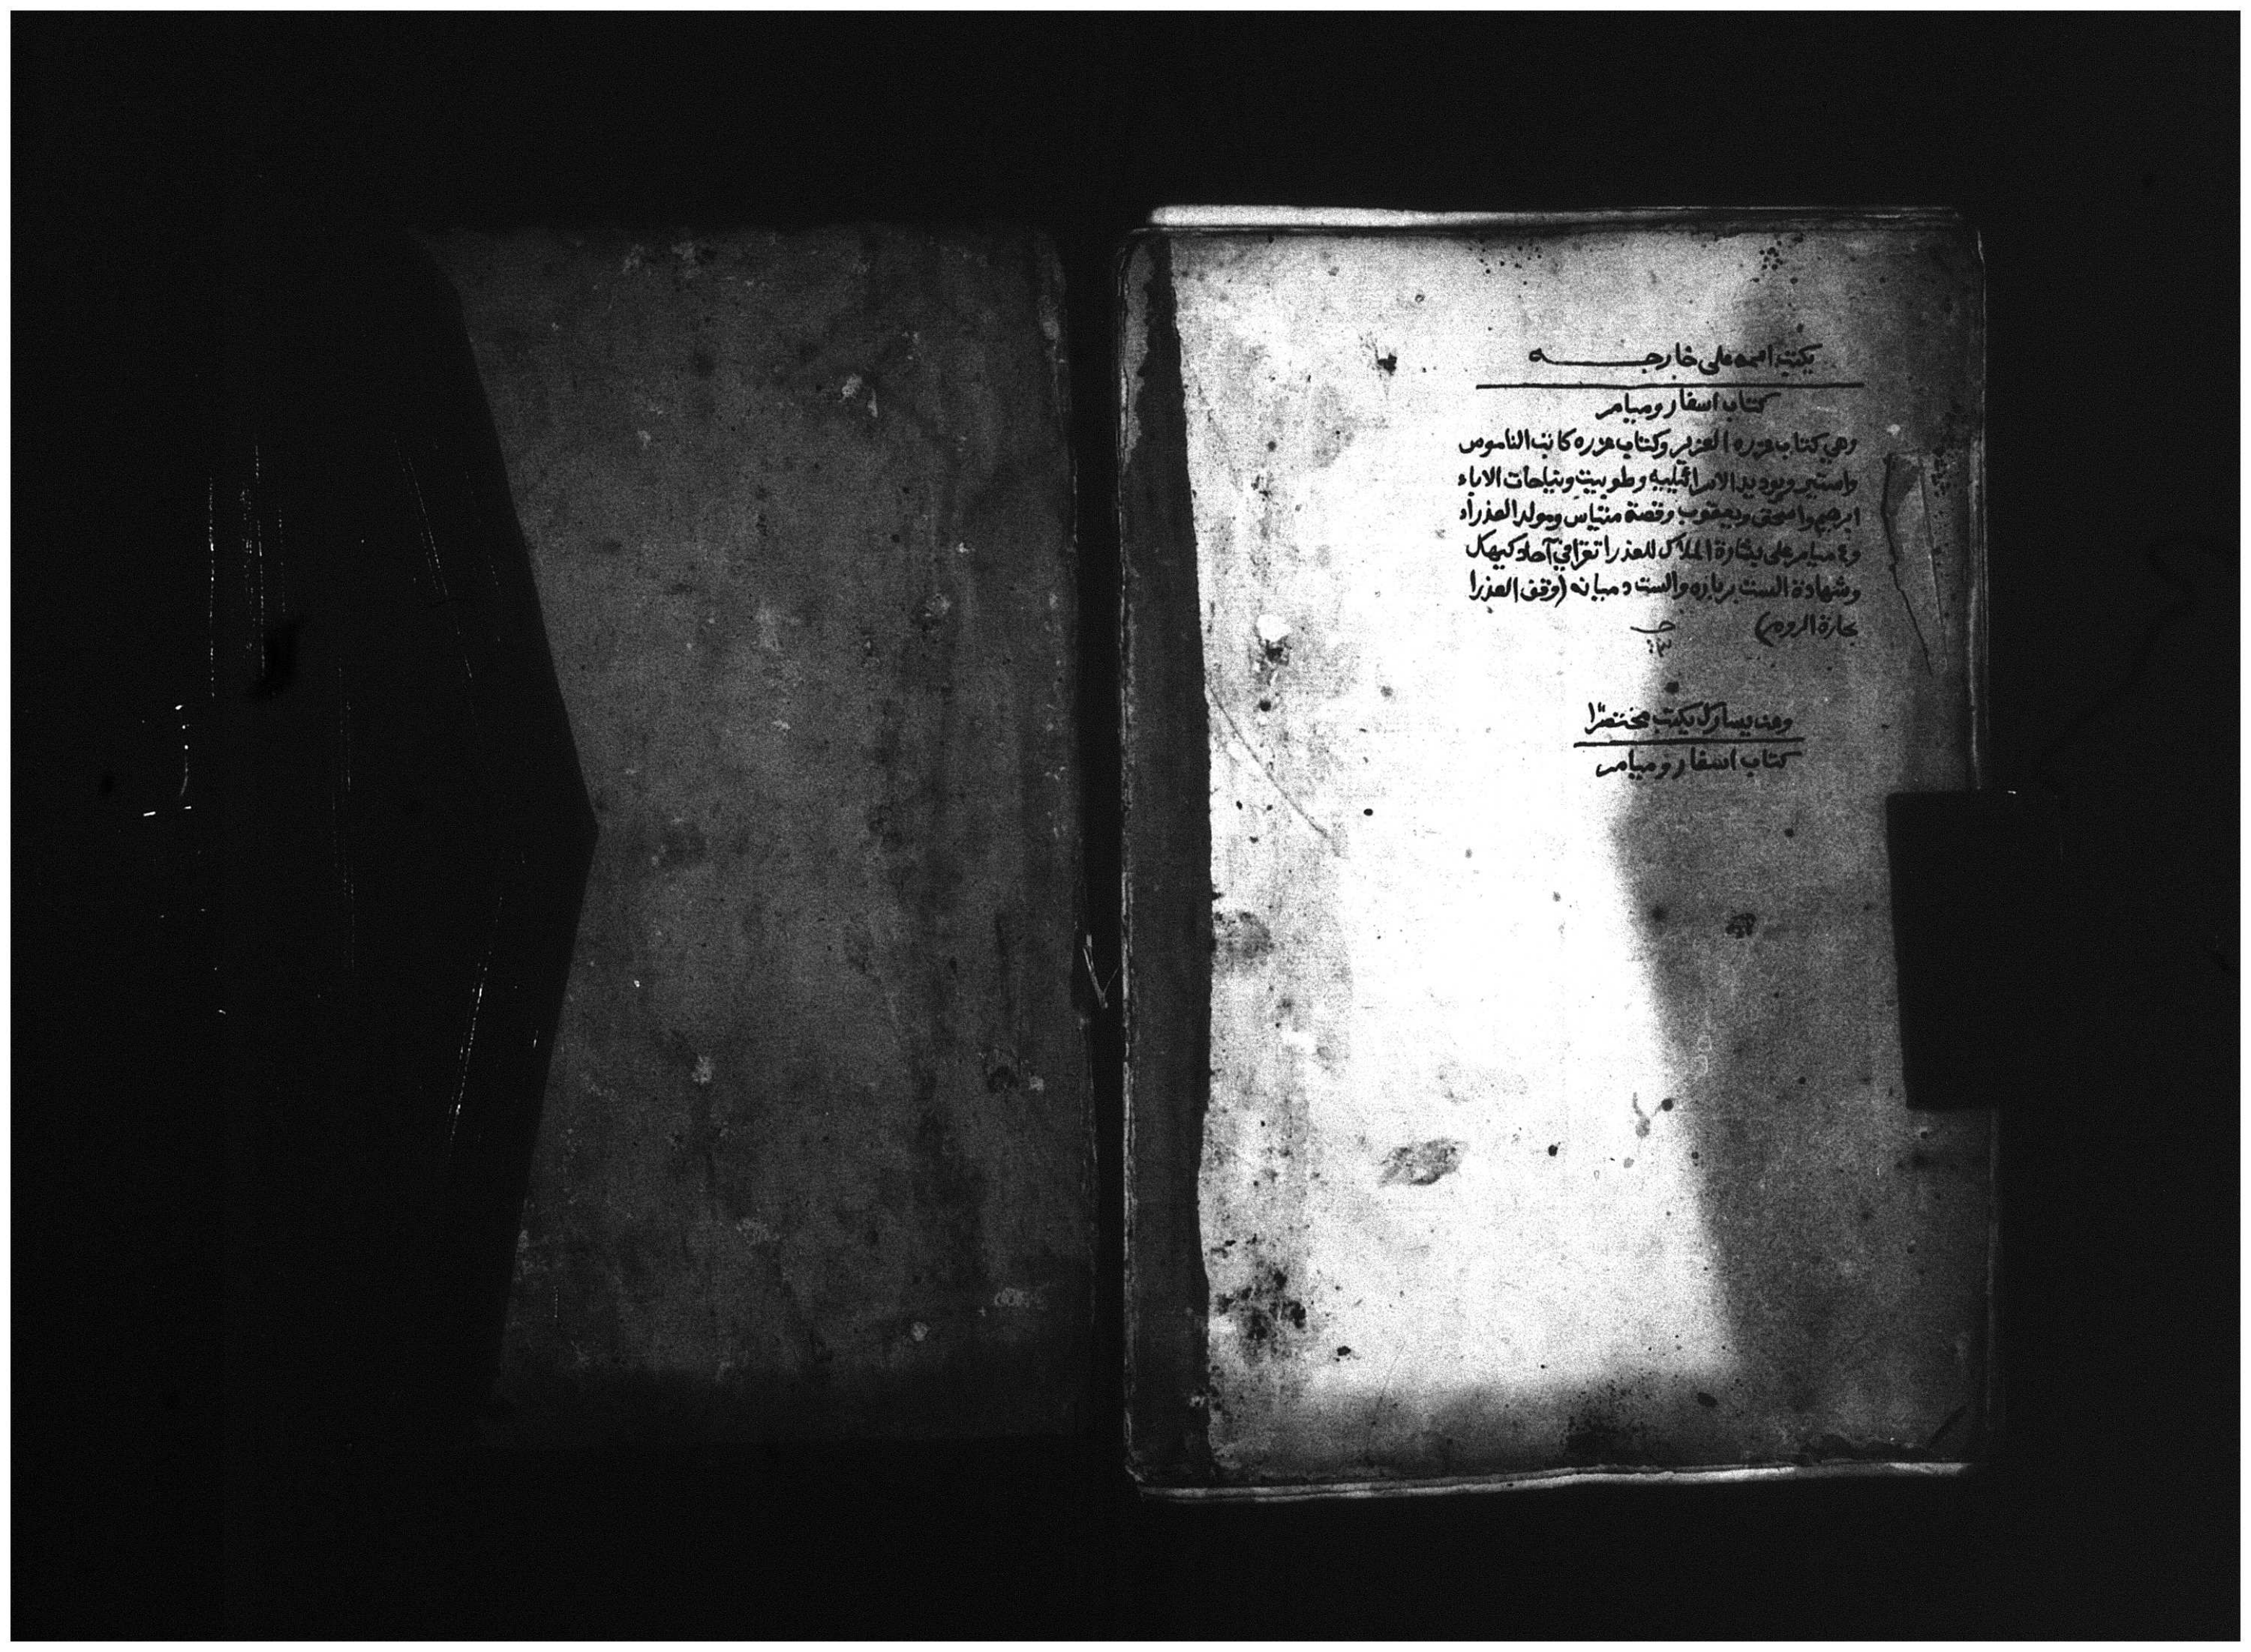 يكتب اسمه على خارجـــــه
كتاب اسفار وميامر
وهي كتاب عزره العزير وكتاب عزره كاتب الناموس
واستير ويوديد الاسرائيليه وطوبيت ونياحات الاباء
ابرهيم واسحق ويعقوب وقصة منتياس ومولد العذراء
و٤ ميامر على بشارة الملاك للعذرا تقرا في آحاد كيهك
وشهادة الست برباره والست دميانه (وقف العذرا
بحارة الروم)
يكتب مختصرًا
كتاب اسفار وميامر